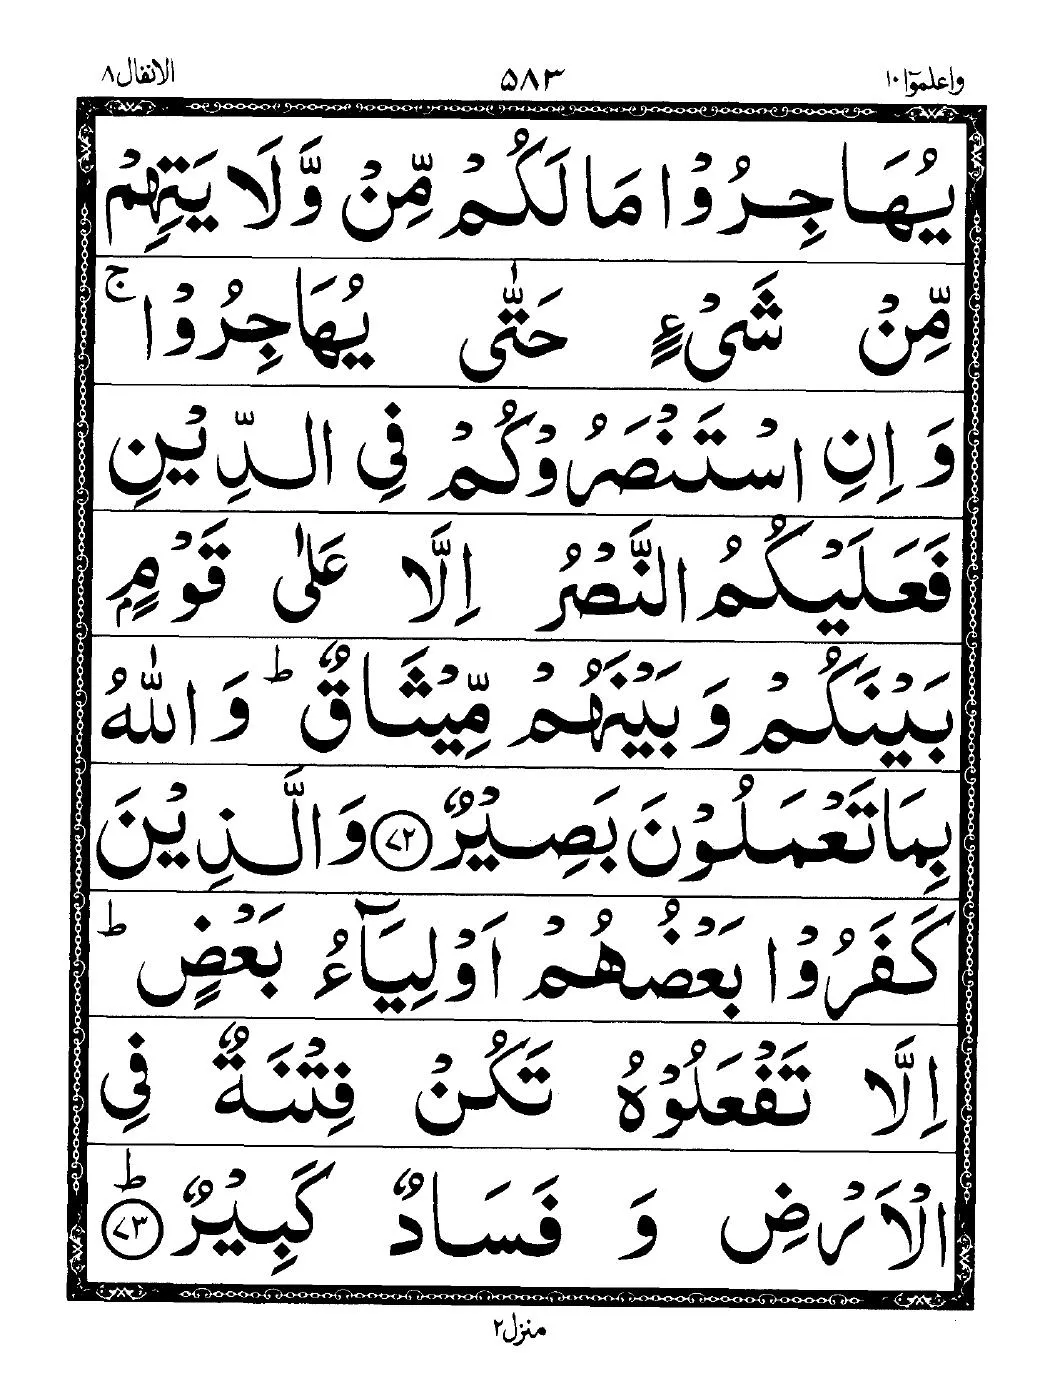 واعلموٓا ١٠ ۵۸۳ الانفال ۸
يُهَاجِرُوْا مَا لَكُمْ مِّنْ وَّلَا يَتِهِمْ
مِّنْ شَىْءٍ حَتّٰى يُهَاجِرُوْا ۚ
وَ اِنِ اسْتَنْصَرُوْكُمْ فِى الدِّيْنِ
فَعَلَيْكُمُ النَّصْرُ اِلَّا عَلٰى قَوْمٍۭ
بَيْنَكُمْ وَ بَيْنَهُمْ مِّيْثَاقٌ ؕ وَ اللّٰهُ
بِمَا تَعْمَلُوْنَ بَصِيْرٌ ﴿۷۲﴾ وَ الَّذِيْنَ
كَفَرُوْا بَعْضُهُمْ اَوْلِيَآءُ بَعْضٍ ؕ
اِلَّا تَفْعَلُوْهُ تَكُنْ فِتْنَةٌ فِى
الْاَرْضِ وَ فَسَادٌ كَبِيْرٌ ؕ ﴿۷۳﴾
منزل ۲